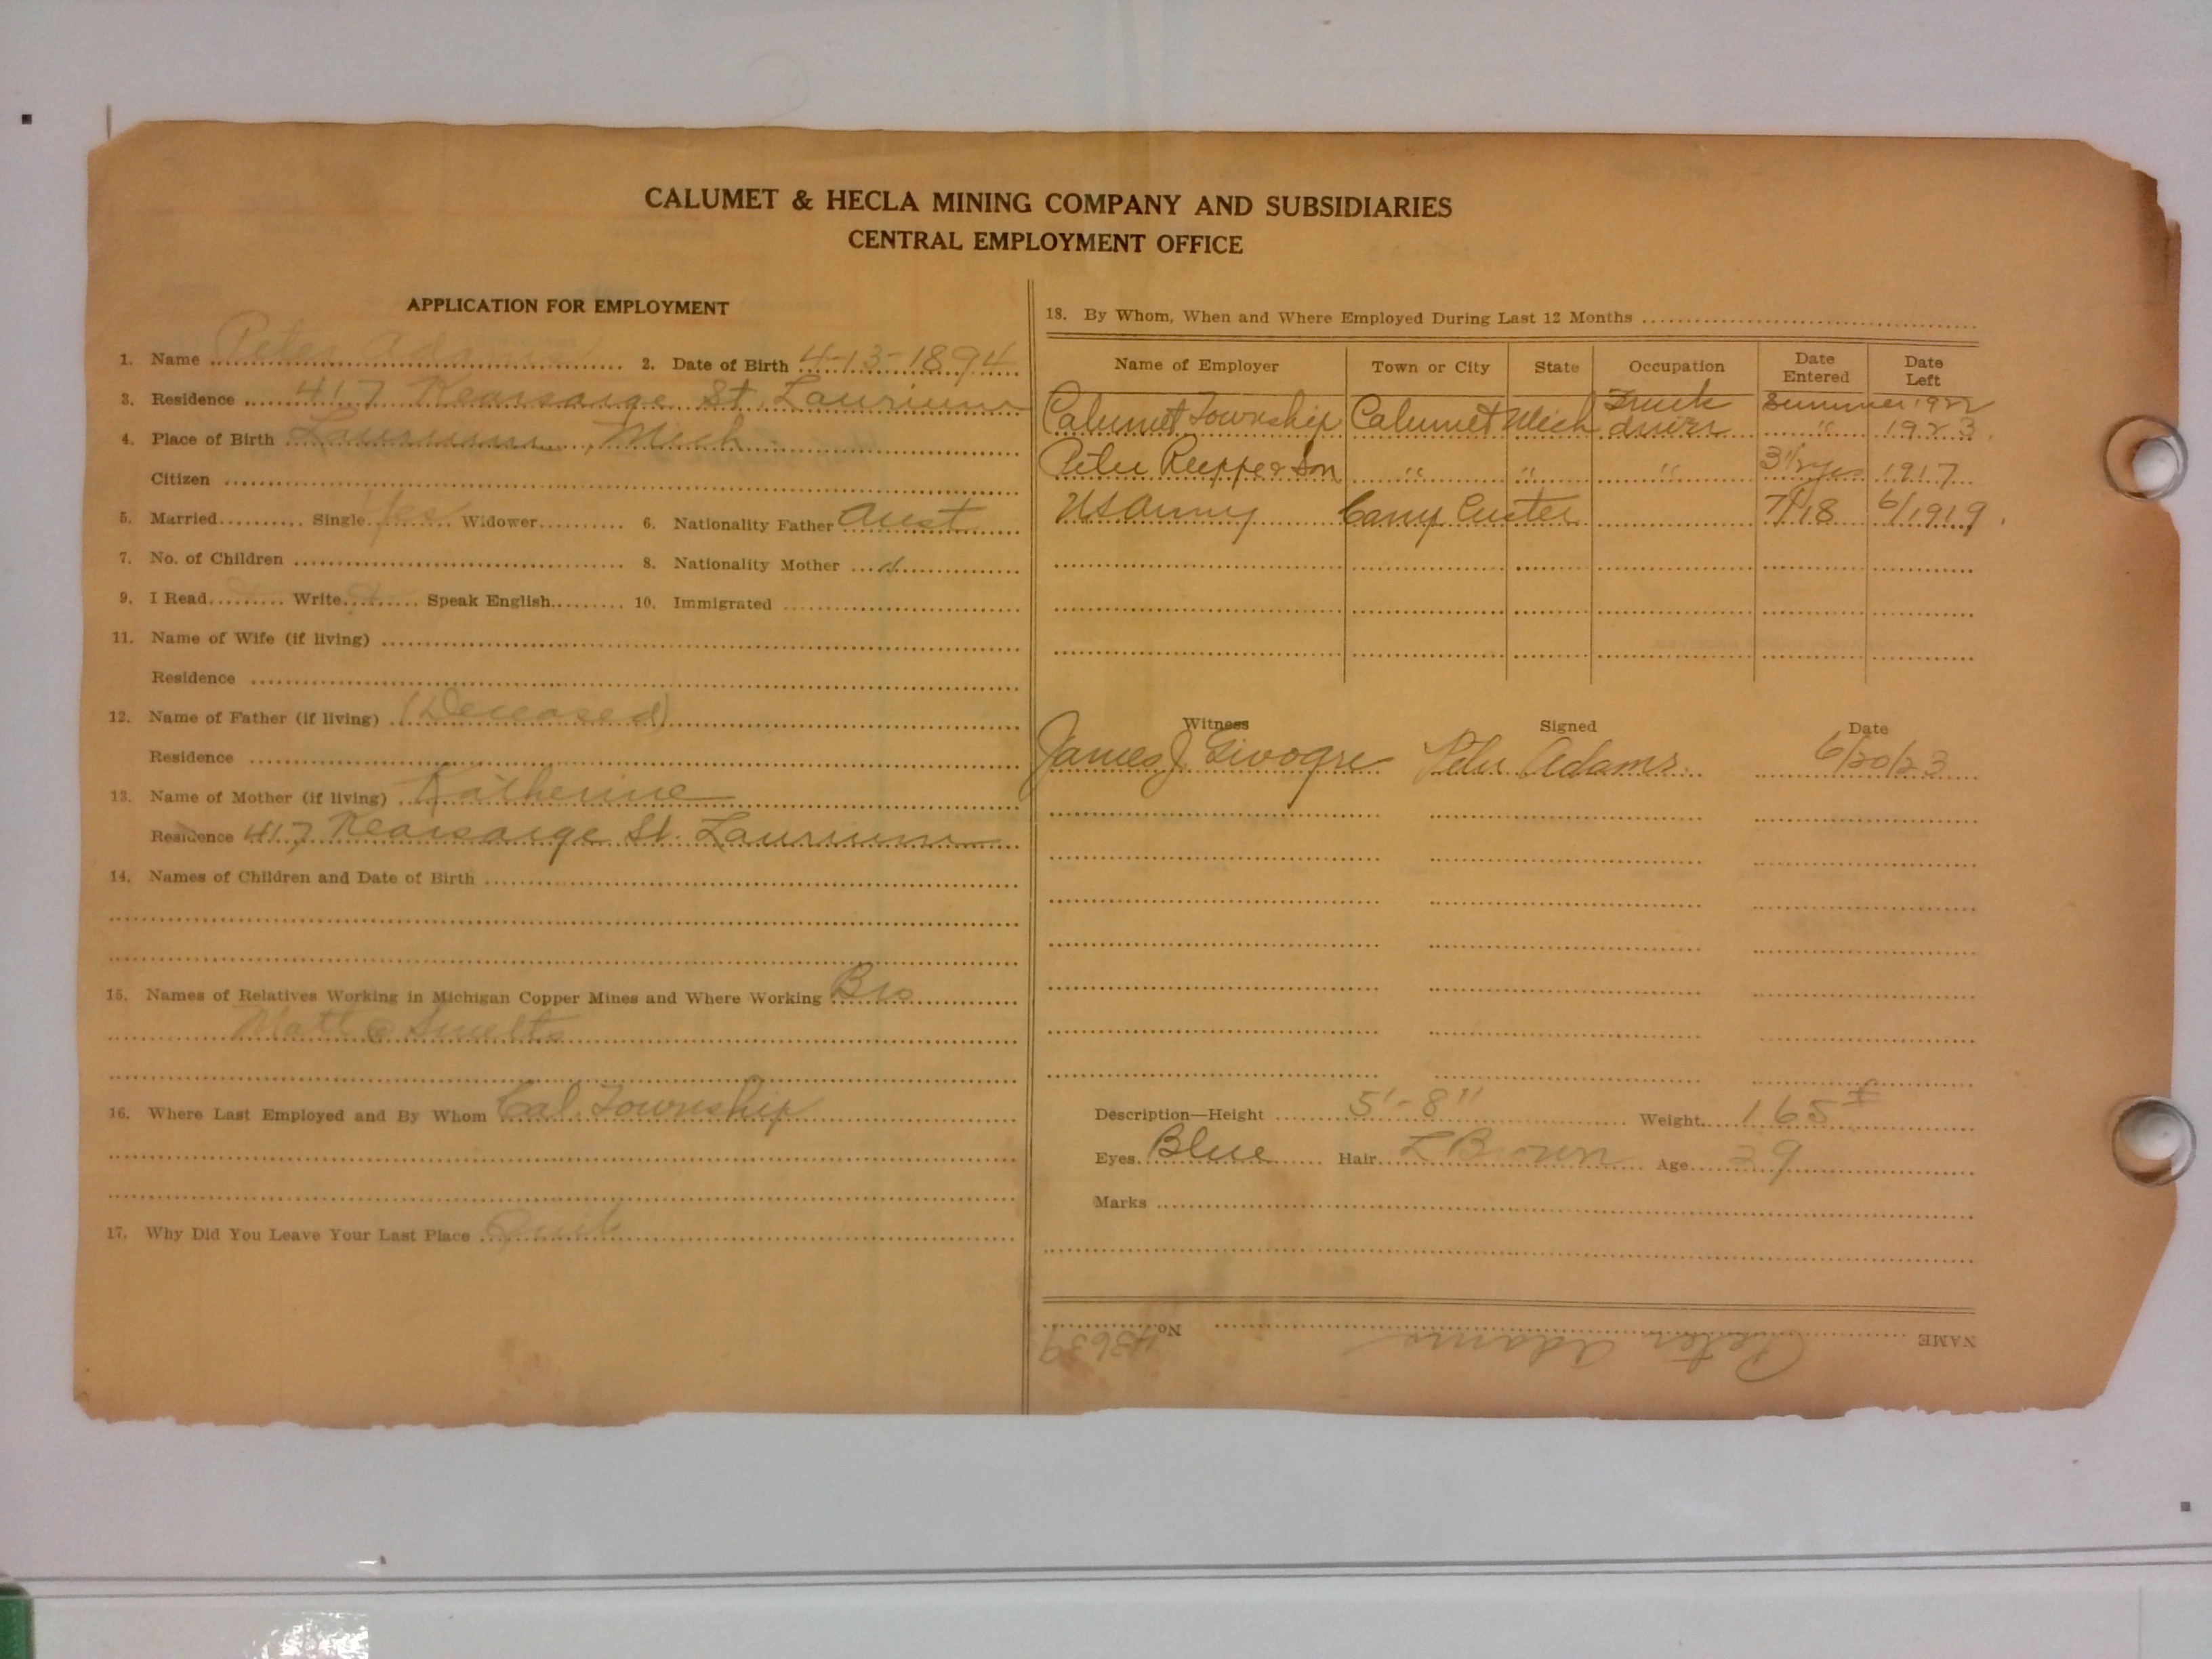 CALUMET & HECLA MINING COMPANY AND SUBSIDIARIES
CENTRAL EMPLOYMENT OFFICE
APPLICATION FOR EMPLOYMENT
1. Name Peter Adams 2. Date of Birth 4-13-1894
3. Residence 417 Kearsarge St. Laurium
4. Place of Birth Laurium, Mich.
Citizen
5. Married Single Yes Widower 6. Nationality Father Aust
7. No. of Children 8. Nationality Mother "
9. I Read Write Speak English 10. Immigrated
11. Name of Wife (if living)
Residence
12. Name of Father (if living) (Deceased)
Residence
13. Name of Mother (if living) Katherine
Residence 417 Kearsarge St. Laurium
14. Names of Children and Date of Birth
15. Names of Relatives Working in Michigan Copper Mines and Where Working Bro
Matt @ Smelts
16. Where Last Employed and By Whom Cal. Township
17. Why Did You Leave Your Last Place Quit
18. By Whom, When and Where Employed During Last 12 Months
Name of Employer Town or City State Occupation Date Entered Date Left
Calumet Township Calumet Mich Truck driver Summer 1922 " 1923
Peter & Son " " " 3 1/2 yrs 1917
US Army Camp Custer 7/18 6/1919
Witness Signed Date
James J Peter Adams 6/20/23
Description—Height 5'-8" Weight 165#
Eyes Blue Hair L Brown Age 29
Marks
NAME Peter Adams No. 43639